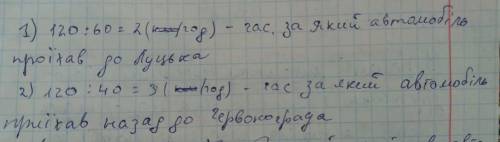 1) 120 : 60 = 2 (год) - час, за який автомобіль
проїхав до Луцька
2) 120 : 40 = 3 (год) - час за який автомобіль
приїхав назад до Червонограда